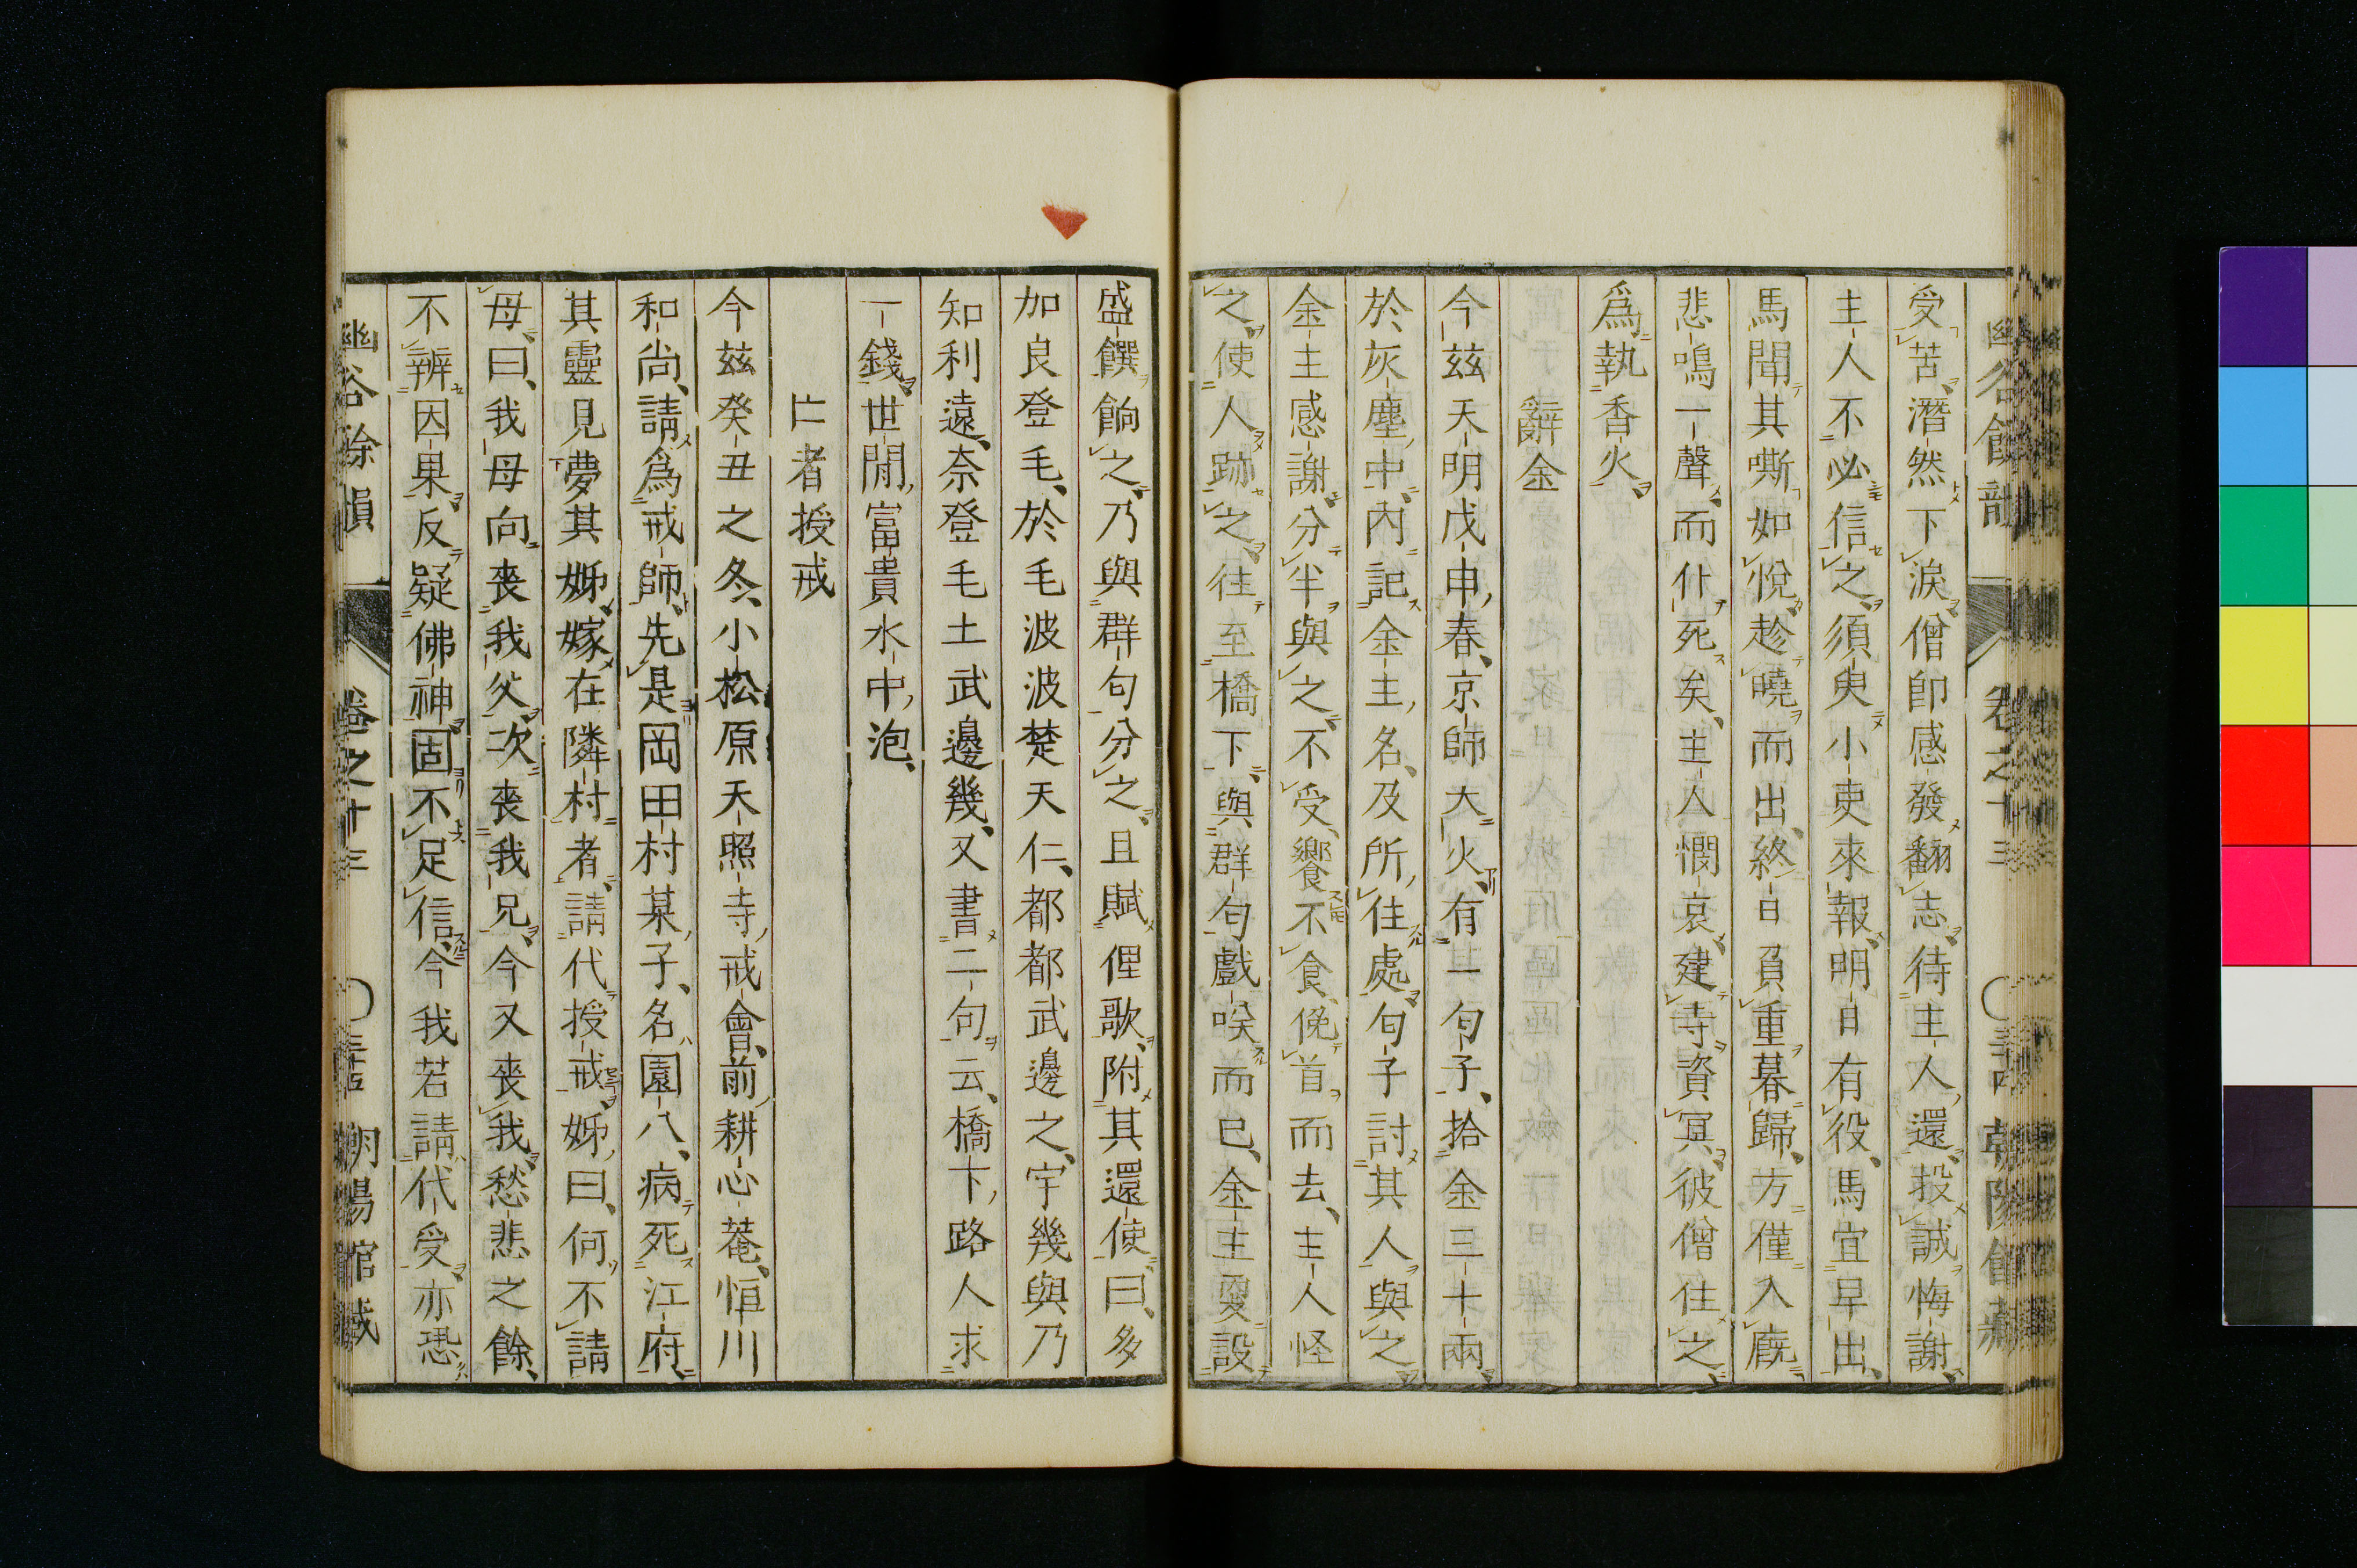 受苦、潛然下涙、僧卽感發翻志、待主人還、投誠悔謝、
主人不必信之、須臾小吏來報、明日有役、馬宜早出、
馬聞其嘶如悅、趁曉而出、終日負重暮歸、方僅入廐、
悲鳴一聲、而仆死矣、主人憫哀、建寺資冥、彼僧住之、
爲執香火、
辭金
今茲天明戊申春、京師大火、有一句子、拾金三十兩、
於灰塵中、內記金主名、及所往處、句子討其人與之、
金主感謝、分半與之、不受、饗不食、俛首而去、主人怪
之、使人跡之、往至橋下、與群句戲咲而已、金主更設
盛饌餉之、乃與群句分之、且賦俚歌、附其還使曰、多
加良登毛、於毛波波楚天仁、都都武邊之、宇幾與乃
知利遠、奈登毛土武邊幾、又書二句云、橋下路人求
一錢、世間富貴水中泡、
亡者授戒
今茲癸丑之冬、小松原天照寺戒會、前耕心菴、恒川
和尚、請爲戒師、先是岡田村某子、名園八、病死江府、
其靈見夢其姊、嫁在隣村者、請代授戒、姊曰、何不請
母、曰、我母向喪我父、次喪我兄、今又喪我、愁悲之餘、
不辨因果、反疑佛神、固不足信、今我若請代受、亦恐
幽谷餘韻
卷之十三
朝陽館藏